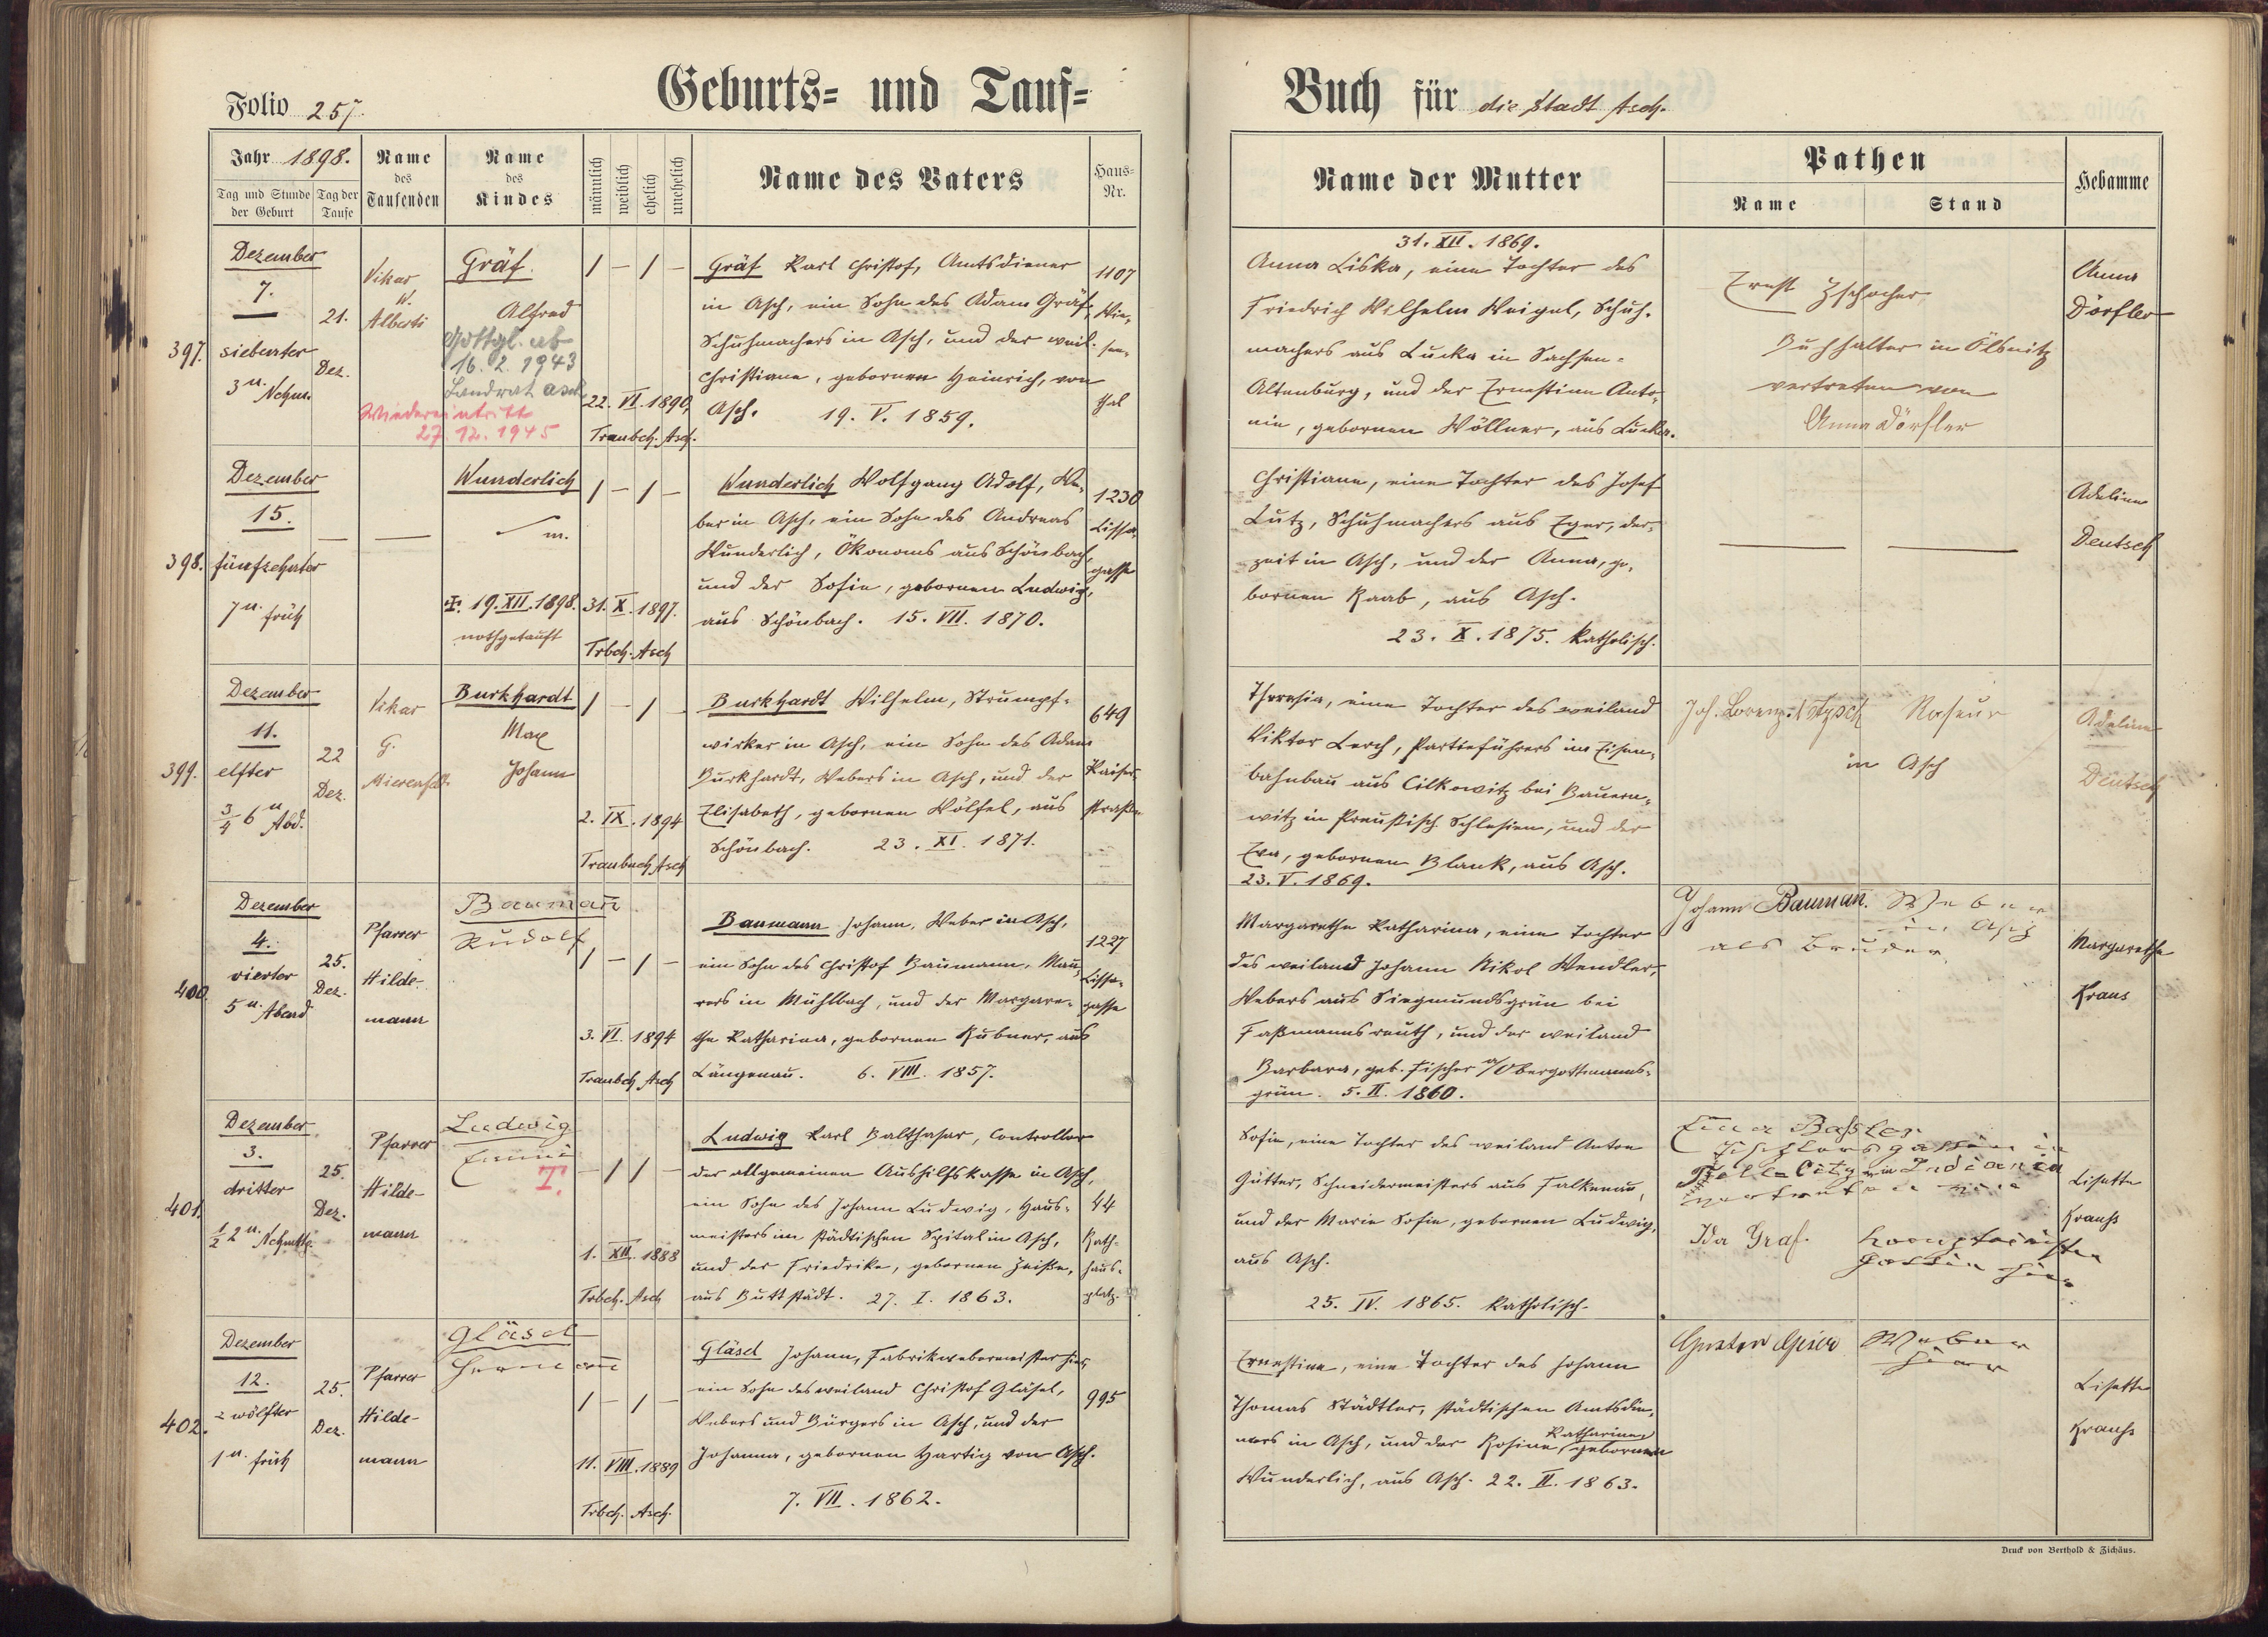 Folio 257.
Geburts- und Tauf-
Buch für die Stadt Asch.
Jahr 1898.
Tag und Stunde der Geburt
Tag der Taufe
Name des Taufenden
Name des Kindes
männlich
weiblich
ehelich
unehelich
Name des Vaters
Haus-Nr.
Name der Mutter
Pathen
Name
Stand
Hebamme
397.
Dezember
7.
siebenter
3 u. Nchm.
21.
Dez.
Vikar
W.
Alberti
Gräf.
Alfred
Gottgl. ab
16. 2. 1943
Landrat Asch
Wiedereintritt
27. 12. 1945
/ - / -
22. VI. 1890,
Traubch. Asch.
Gräf Karl Christof, Amtsdiener
in Asch, ein Sohn des Adam Gräf,
Schuhmachers in Asch, und der weil.
Christiane, gebornen Heinrich, von
Asch. 19. V. 1859.
1107
Wie-
sen-
thal
31. XII. 1869.
Anna Liska, eine Tochter des
Friedrich Wilhelm Weigel, Schuh-
machers aus Lucka in Sachsen-
Altenburg, und der Ernestine Anto-
nie, gebornen Wöllner, aus Lucka.
Ernst Zschocher
Buchhalter in Ölsnitz
vertreten von
Anna Dörfler
Anna
Dörfler
398.
Dezember
15.
fünfzehnter
7 u. früh
Wunderlich
m.
19. XII. 1898.
nothgetauft
/ - / -
31. X. 1897.
Trbch. Asch
Wunderlich Wolfgang Adolf, We-
ber in Asch, ein Sohn des Andreas
Wunderlich, Ökonoms aus Schönbach,
und der Sofie, gebornen Ludwig,
aus Schönbach. 15. VII. 1870.
1230
Lissa-
gasse
Christiane, eine Tochter des Josef
Lutz, Schuhmachers aus Eger, der-
zeit in Asch, und der Anna, ge-
bornen Raab, aus Asch.
23. X. 1875. katholisch.
Adeline
Deutsch
399.
Dezember
11.
elfter
3/4 6 u Abd.
22
Dez.
Vikar
G.
Burkhardt
Max
Johann
/ - / -
2. IX. 1894
Traubuch Asch
Burkhardt Wilhelm, Strumpf-
wirker in Asch, ein Sohn des Adam
Burkhardt, Webers in Asch, und der
Elisabeth, gebornen Wölfel, aus
Schönbach. 23. XI. 1871.
649
Kaiser-
straße
Theresia, eine Tochter des weiland
Viktor Lerch, Partieführers im Eisen-
bahnbau aus Cilkowitz bei Bauern-
witz in Preußisch Schlesien, und der
Eva, gebornen Blank, aus Asch.
23. V. 1869.
Joh. Lorenz
Raseur
in Asch
Adeline
Deutsch
400.
Dezember
4.
vierter
5 u. Abend
25.
Dez.
Pfarrer
Hilde-
mann
Bauman̄
Rudolf
/ - / -
3. VI. 1894
Traubch Asch
Baumann Johann, Weber in Asch,
ein Sohn des Christof Baumann, Mau-
rers in Mühlbach, und der Margare-
the Katharina, gebornen Hubner, aus
Längenau. 6. VIII. 1857.
1227
Lissa-
gasse
Margaretha Katharina, eine Tochter
des weiland Johann Nikol Wendler,
Webers aus Siegmundsgrün bei
Faßmannsreuth, und der weiland
Barbara, geb. Fischer a/Obergottmanns-
grün. 5. II. 1860.
Johann Bauman̄. Weber
in Asch
als Bruder.
Margaretha
Kraus
401.
Dezember
3.
dritter
1/2 2 u. Nchmttg.
25.
Dez.
Pfarrer
Hilde-
mann
Ludwig
Emmi
T.
- / / -
1. XII. 1888
Trbch. Asch
Ludwig Karl Balthasar, Controllor
der allgemeinen Aushilfskasse in Asch,
ein Sohn des Johann Ludwig, Haus-
meisters im städtischen Spital in Asch,
und der Friedrike, gebornen Zeiße,
aus Buttstädt. 27. I. 1863.
44
Rath-
haus-
platz.
Sofie, eine Tochter des weiland Anton
Gütter, Schneidermeisters aus Falkenau,
und der Marie Sofie, gebornen Ludwig,
aus Asch.
25. IV. 1865. katholisch.
Tischlersgattin in
Tell City in Indiania
vertreten von
Ida Graf.
gattin hier
Lisette
Krauß
402.
Dezember
12.
zwölfter
1 u. früh
25.
Dez.
Pfarrer
Hilde-
mann
Gläsel
Herman̄
/ - / -
11. VIII. 1889
Trbch. Asch.
Gläsel Johann, Fabrikwebermeister hier,
ein Sohn des weiland Christof Gläsel,
Webers und Bürgers in Asch, und der
Johanna, gebornen Hartig von Asch.
7. VII. 1862.
995
Ernestine, eine Tochter des Johann
Thomas Städtler, städtischen Amtsdie-
ners in Asch, und der Rosine Katharine, gebornen
Wunderlich, aus Asch. 22. II. 1863.
Gustav Geier Weber
hier
Lisette
Krauß
Druck von Berthold & Zichäus.